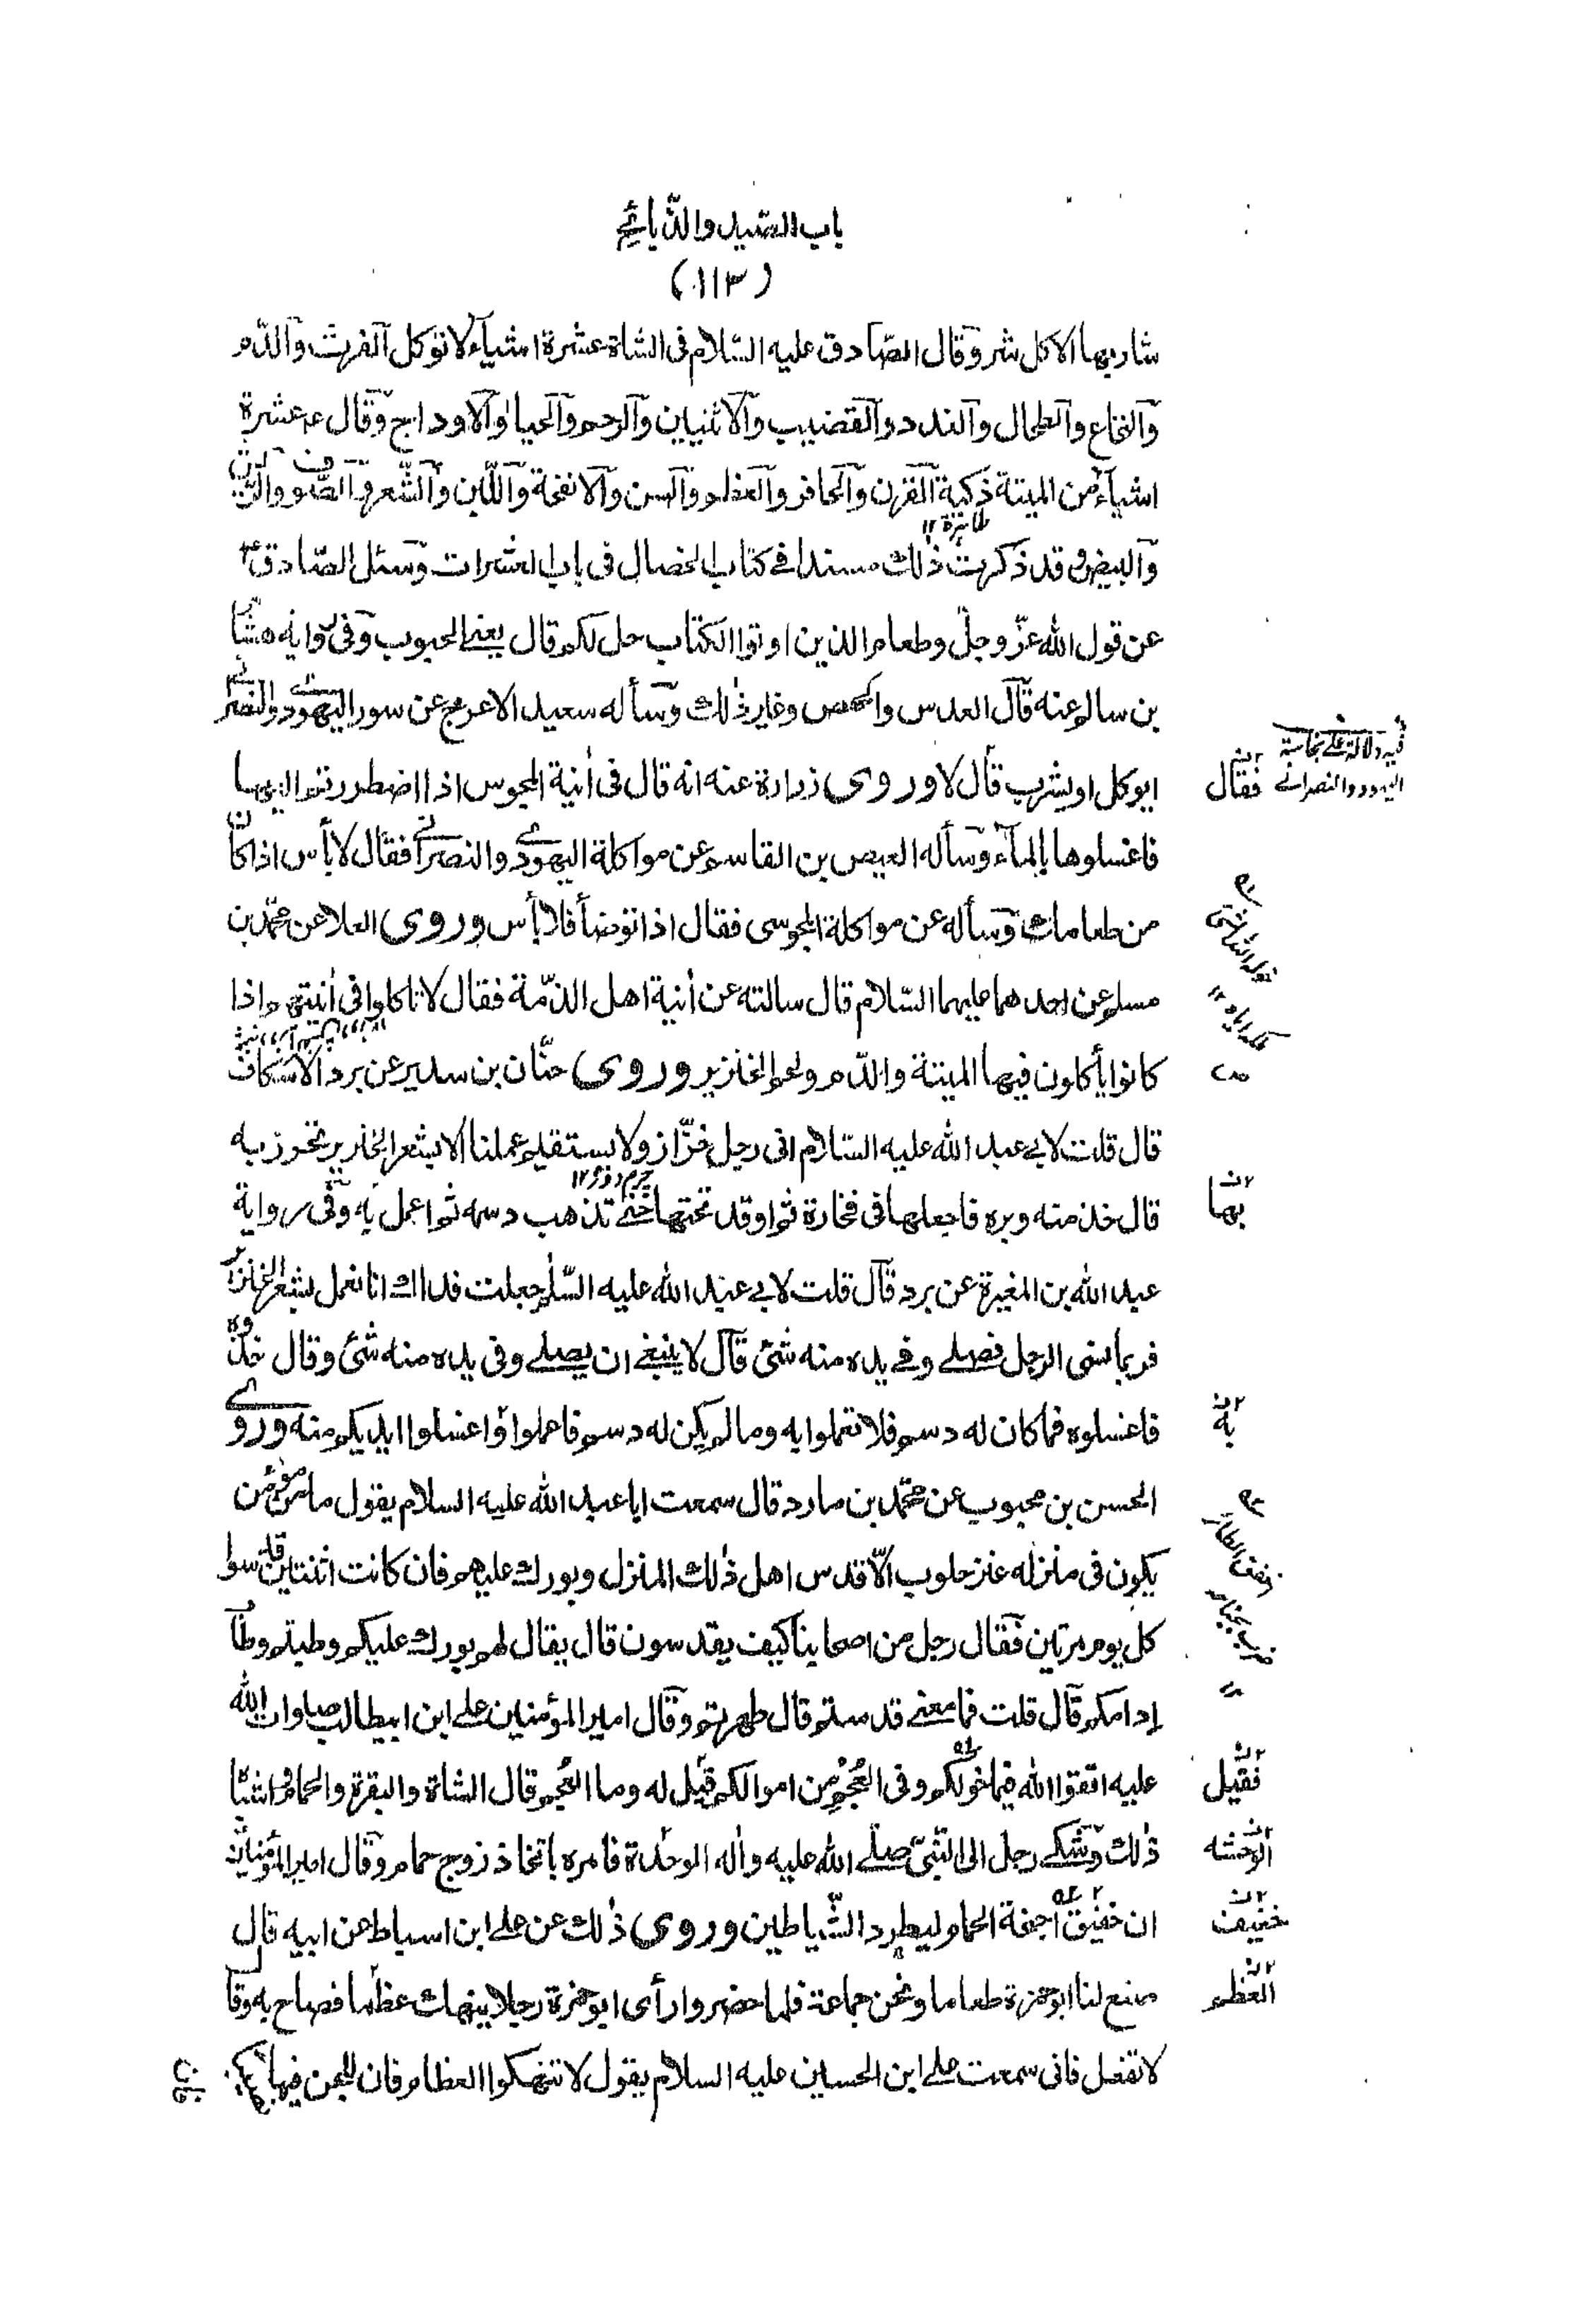 باب الصید والذبائح
(۱۱۳)
شاربها الا کل شر وقال الصادق علیه السلام فی الشاة عشرة اشیاء لا تؤکل الفرث والدم
والنخاع والطحال والغدد والقضیب والانثیین والرحم والحیا والاوداج وقال ع عشرة
اشیاء من المیتة ذکیة القرن والحافر والعظم والسن والانفحة واللبن والشعر والصوف والریش
والبیض وقد ذکرت ذلك مسندا فی کتاب الخصال فی باب العشرات وسئل الصادق ع
عن قول الله عز وجل وطعام الذین اوتوا الکتاب حل لکم قال یعنی الحبوب وفی روایة هشام
بن سالم عنه قال العدس والحمص وغیر ذلك وسأله سعید الاعرج عن سور الیهودی والنصرانی
ایوکل او یشرب قال لا وروی زرارة عنه انه قال فی آنیة المجوس اذا اضطررتم الیها
فاغسلوها بالماء وسأله العیص بن القاسم عن مواکلة الیهودی والنصرانی فقال لا بأس اذا کان
من طعامك وسأله عن مواکلة المجوسی فقال اذا توضأ فلا بأس وروی العلا عن محمد بن
مسلم عن احدهما علیهما السلام قال سالته عن آنیة اهل الذمة فقال لا تاکلوا فی آنیتهم اذا
کانوا یأکلون فیها المیتة والدم ولحم الخنزیر وروی حنان بن سدیر عن برد الاسکاف
قال قلت لابی عبد الله علیه السلام انی رجل خراز ولا یستقیم عملنا الا بشعر الخنزیر نخرز به
قال خذ منه وبره فاجعلها فی فخارة ثم اوقد تحتها حتی تذهب دسمه ثم اعمل به وفی روایة
عبد الله بن المغیرة عن برد قال قلت لابی عبد الله علیه السلم جعلت فداك انا نعمل بشعر الخنزیر
فربما نسی الرجل فصلی وفی یده منه شئ قال لا ینبغی ان یصلی وفی یده منه شئ وقال خذوه
فاغسلوه فما کان له دسم فلا تعملوا به وما لم یکن له دسم فاعملوا واغسلوا ایدیکم منه وروی
الحسن بن محبوب عن محمد بن مارد قال سمعت ابا عبد الله علیه السلام یقول ما من مؤمن
یکون فی منزله عنز حلوب الا قدس اهل ذلك المنزل وبورك علیهم فان کانت اثنتین قدسوا
کل یوم مرتین فقال رجل من اصحابنا کیف یقدسون قال یقال لهم بورك علیکم وطبتم وطاب
ادامکم قال قلت فما معنی قدستم قال طهرتم وقال امیر المؤمنین علی ابن ابیطالب صلوات الله
علیه اتقوا الله فیما خولکم وفی العجم من اموالکم قیل له وما العجم قال الشاة والبقرة والحمام واشباه
ذلك وشکی رجل الی النبی صلی الله علیه وآله الوحدة فامره باتخاذ زوج حمام وقال امیر المؤمنین
ان خفیق اجنحة الحمام لیطرد الشیاطین وروی ذلك عن علی ابن اسباط عن ابیه قال
صنع لنا ابو حمزة طعاما ونحن جماعة فلما حضروا رأی ابو حمزة رجلا ینهك عظما فصاح به وقال
لا تفعل فانی سمعت علی ابن الحسین علیه السلام یقول لا تنهکوا العظام فان للجن فیها
فیه دلالة علی نجاسة
الیهود والنصرانی
فقال
بها
به
فقیل
الوحشه
خفیف
العظم
فان